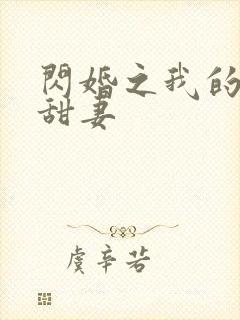 閃婚之我的
甜妻
虞辛若